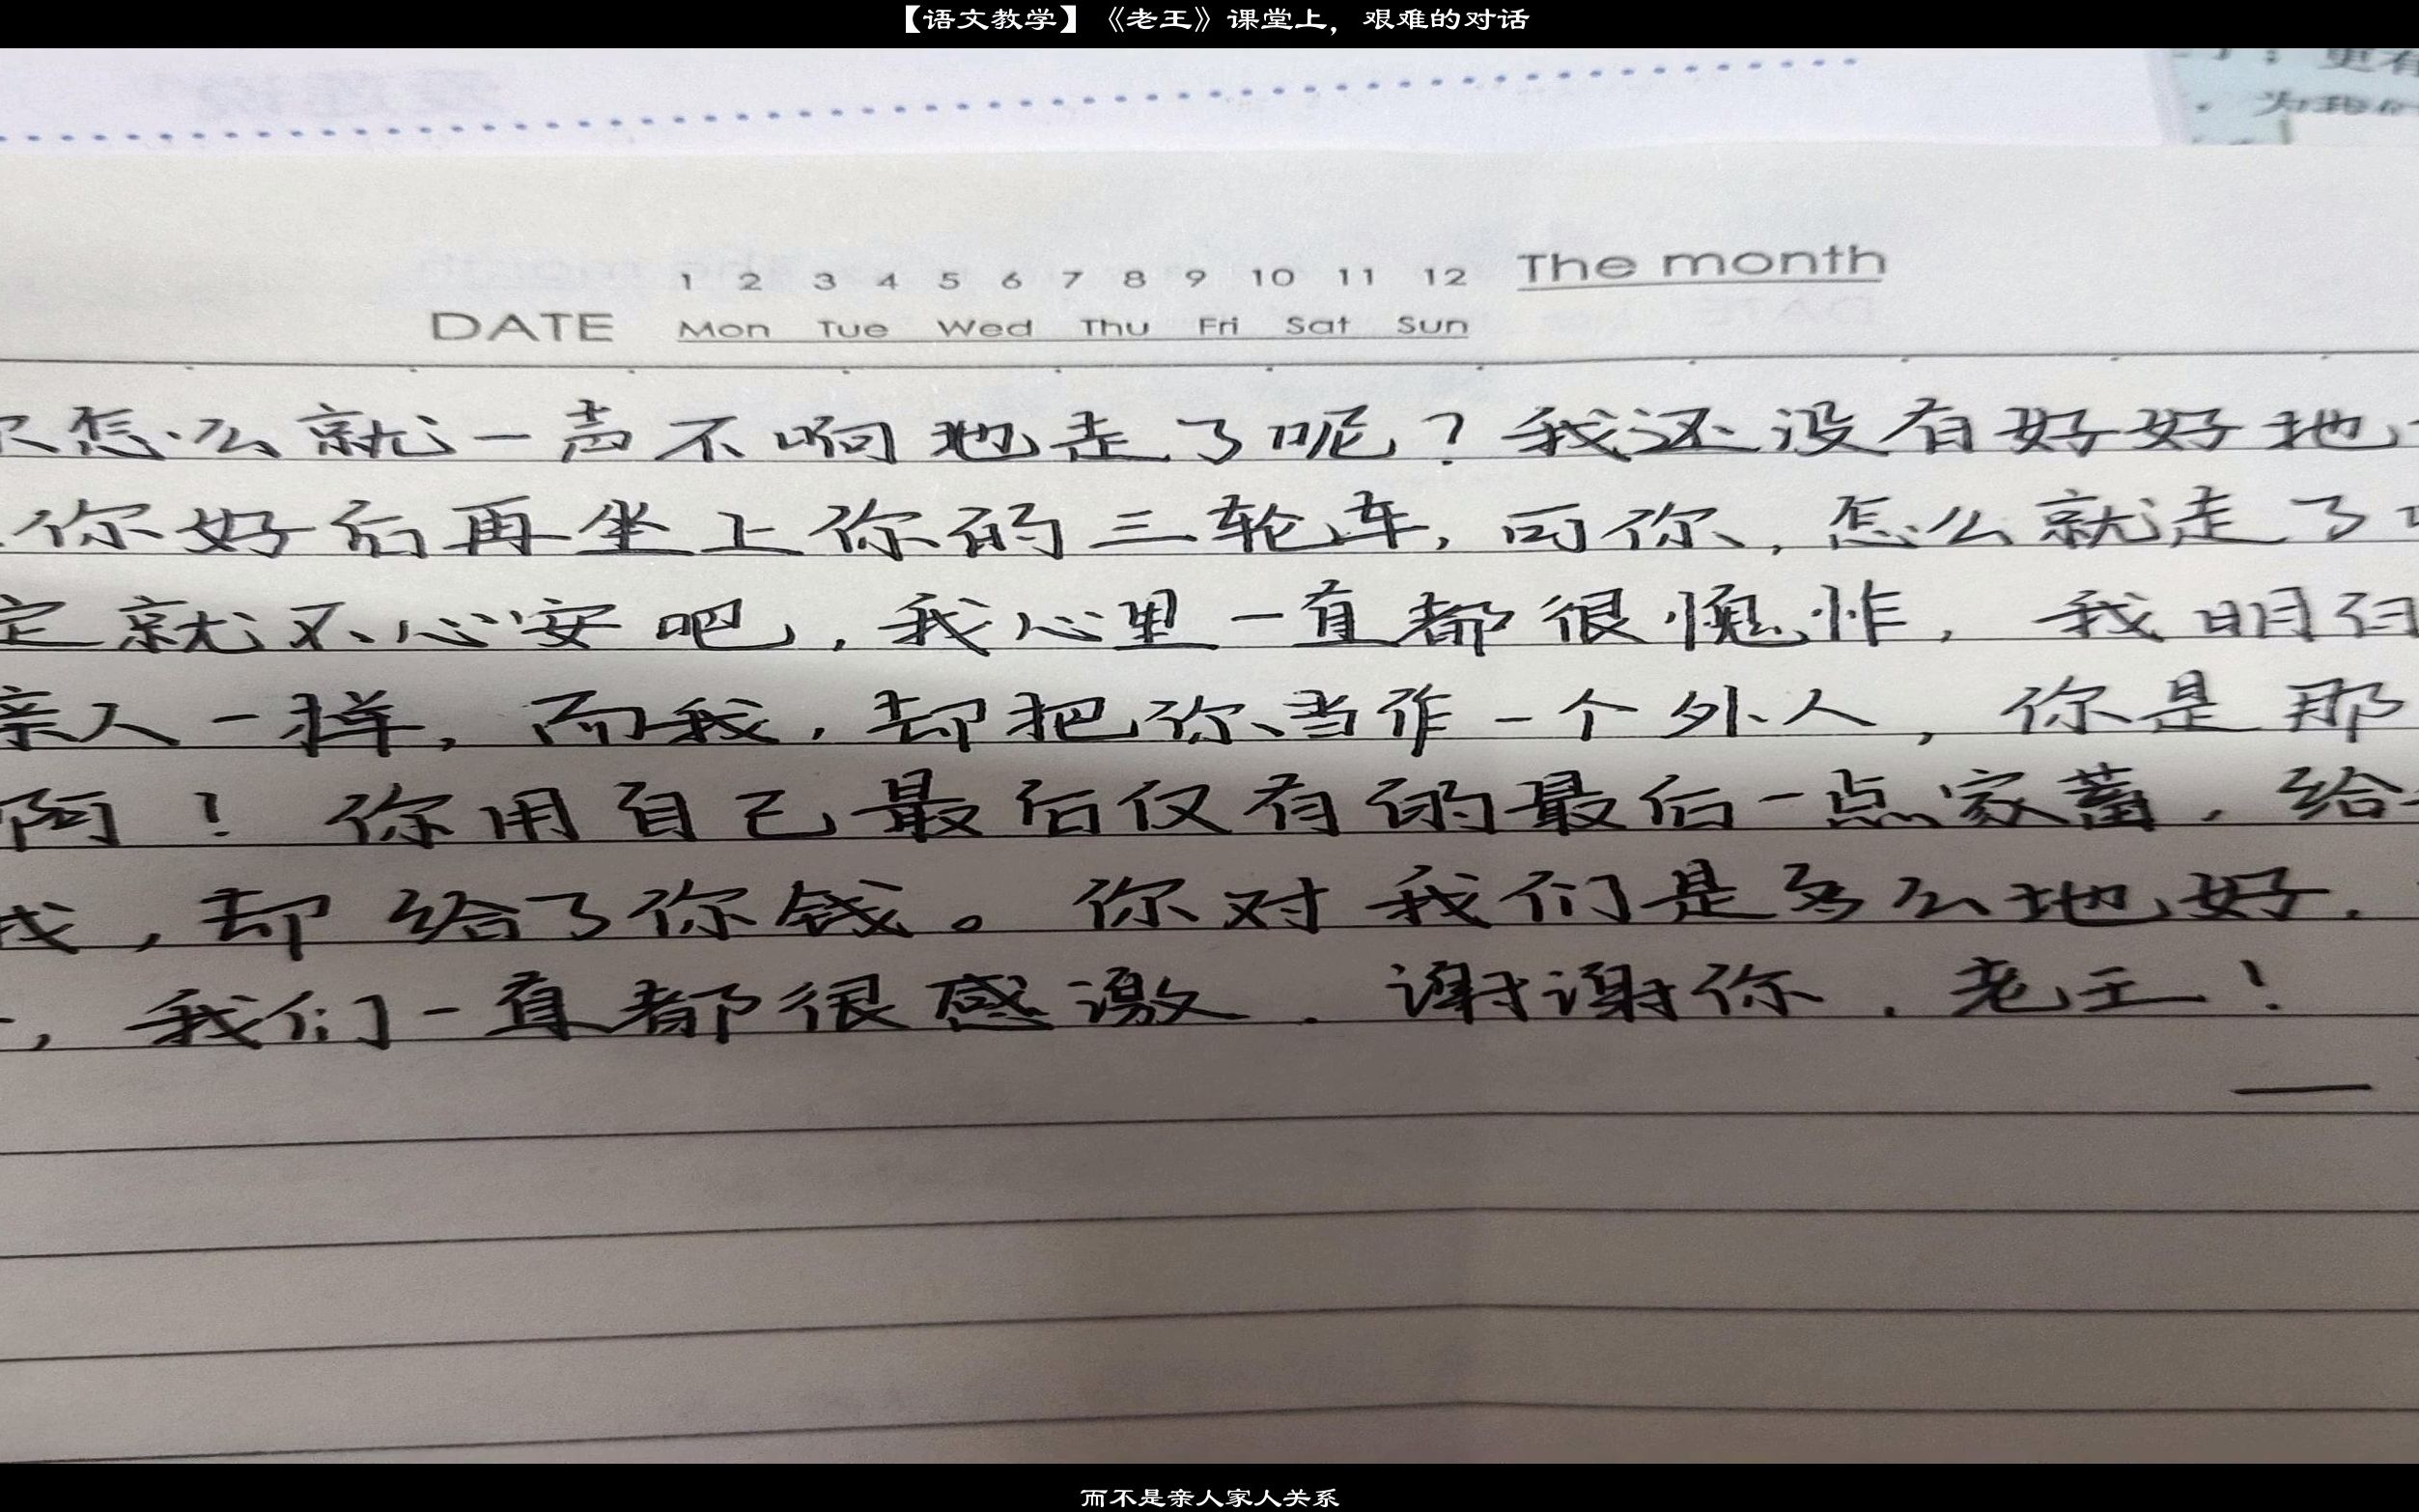 【语文教学】《老王》课堂上，艰难的对话
更有
为我们
1 2 3 4 5 6 7 8 9 10 11 12 The month
DATE Mon Tue Wed Thu Fri Sat Sun
怎么就一声不响地走了呢？我还没有好好地
你好后再坐上你的三轮车，可你，怎么就走了
定就不心安吧，我心里一直都很愧怍，我明白
亲人一样，而我，却把你当作一个外人，你是那
啊！你用自己最后仅有的最后一点家蓄，给
我，却给了你钱。你对我们是多么地好，
，我们一直都很感激．谢谢你．老王！
—
而不是亲人家人关系